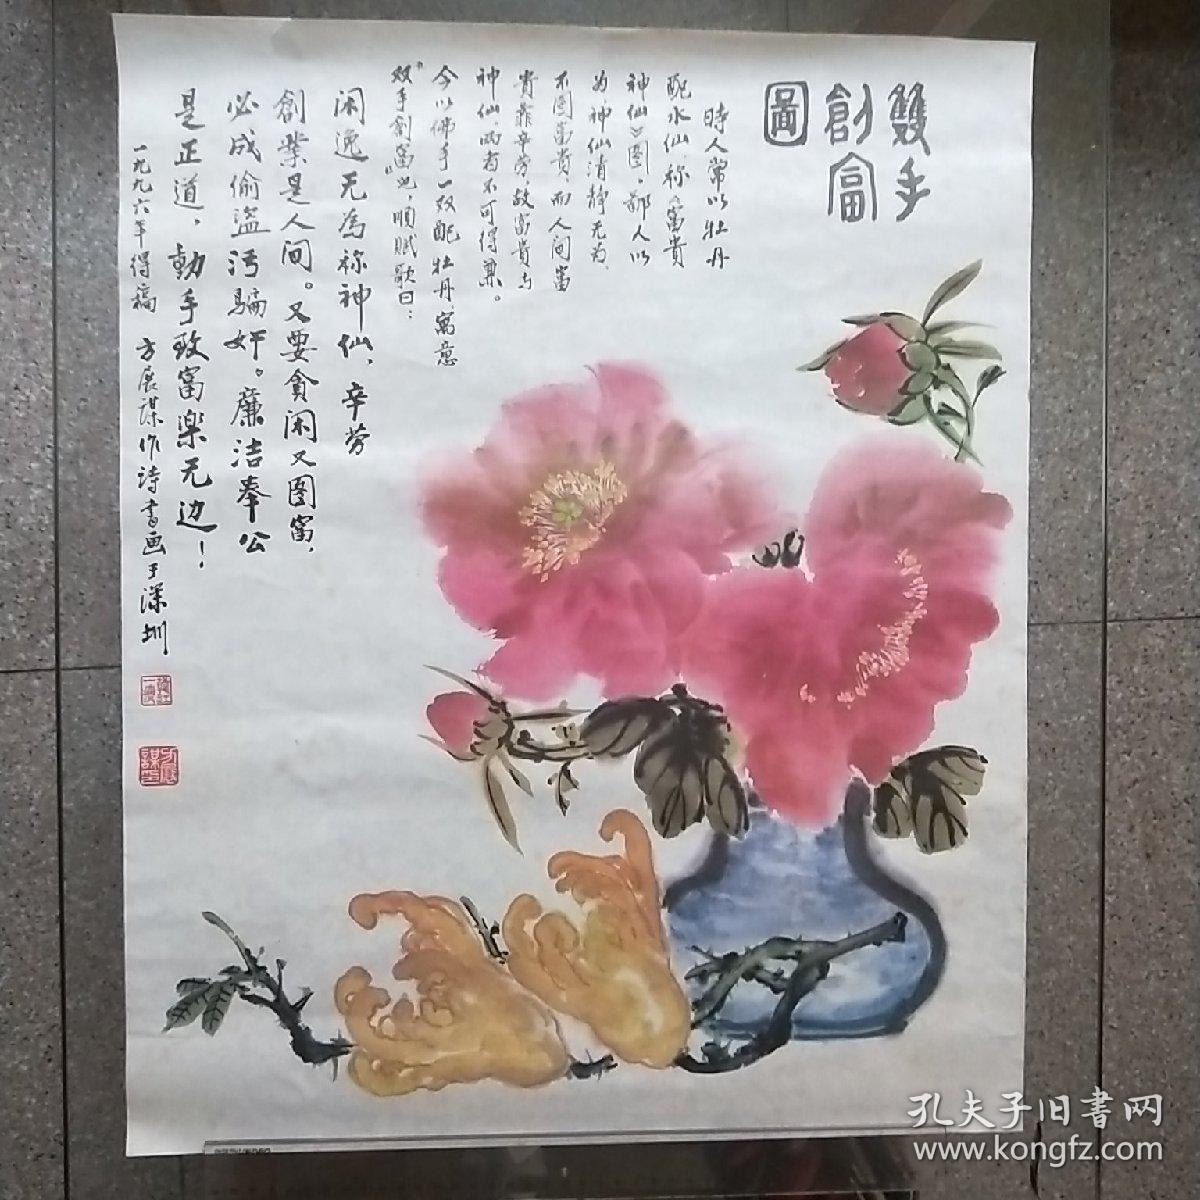 雙手
創富
圖
時人常以牡丹
配水仙，称《富貴
神仙》图，鄙人以
为神仙清静无为、
不图富貴，而人间富
貴靠辛劳，故富貴与
神仙，两者不可得兼。
今以佛手一双配牡丹，寓意
“双手創富”也，顺賦歌曰：
闲逸无為称神仙，辛劳
創業是人间。又要貪闲又图富，
必成偷盜污騙奸。廉洁奉公
是正道，勤手致富楽无边！
一九九六年得稿 方展谋作诗書画于深圳
孔夫子旧書网
www.kongfz.com